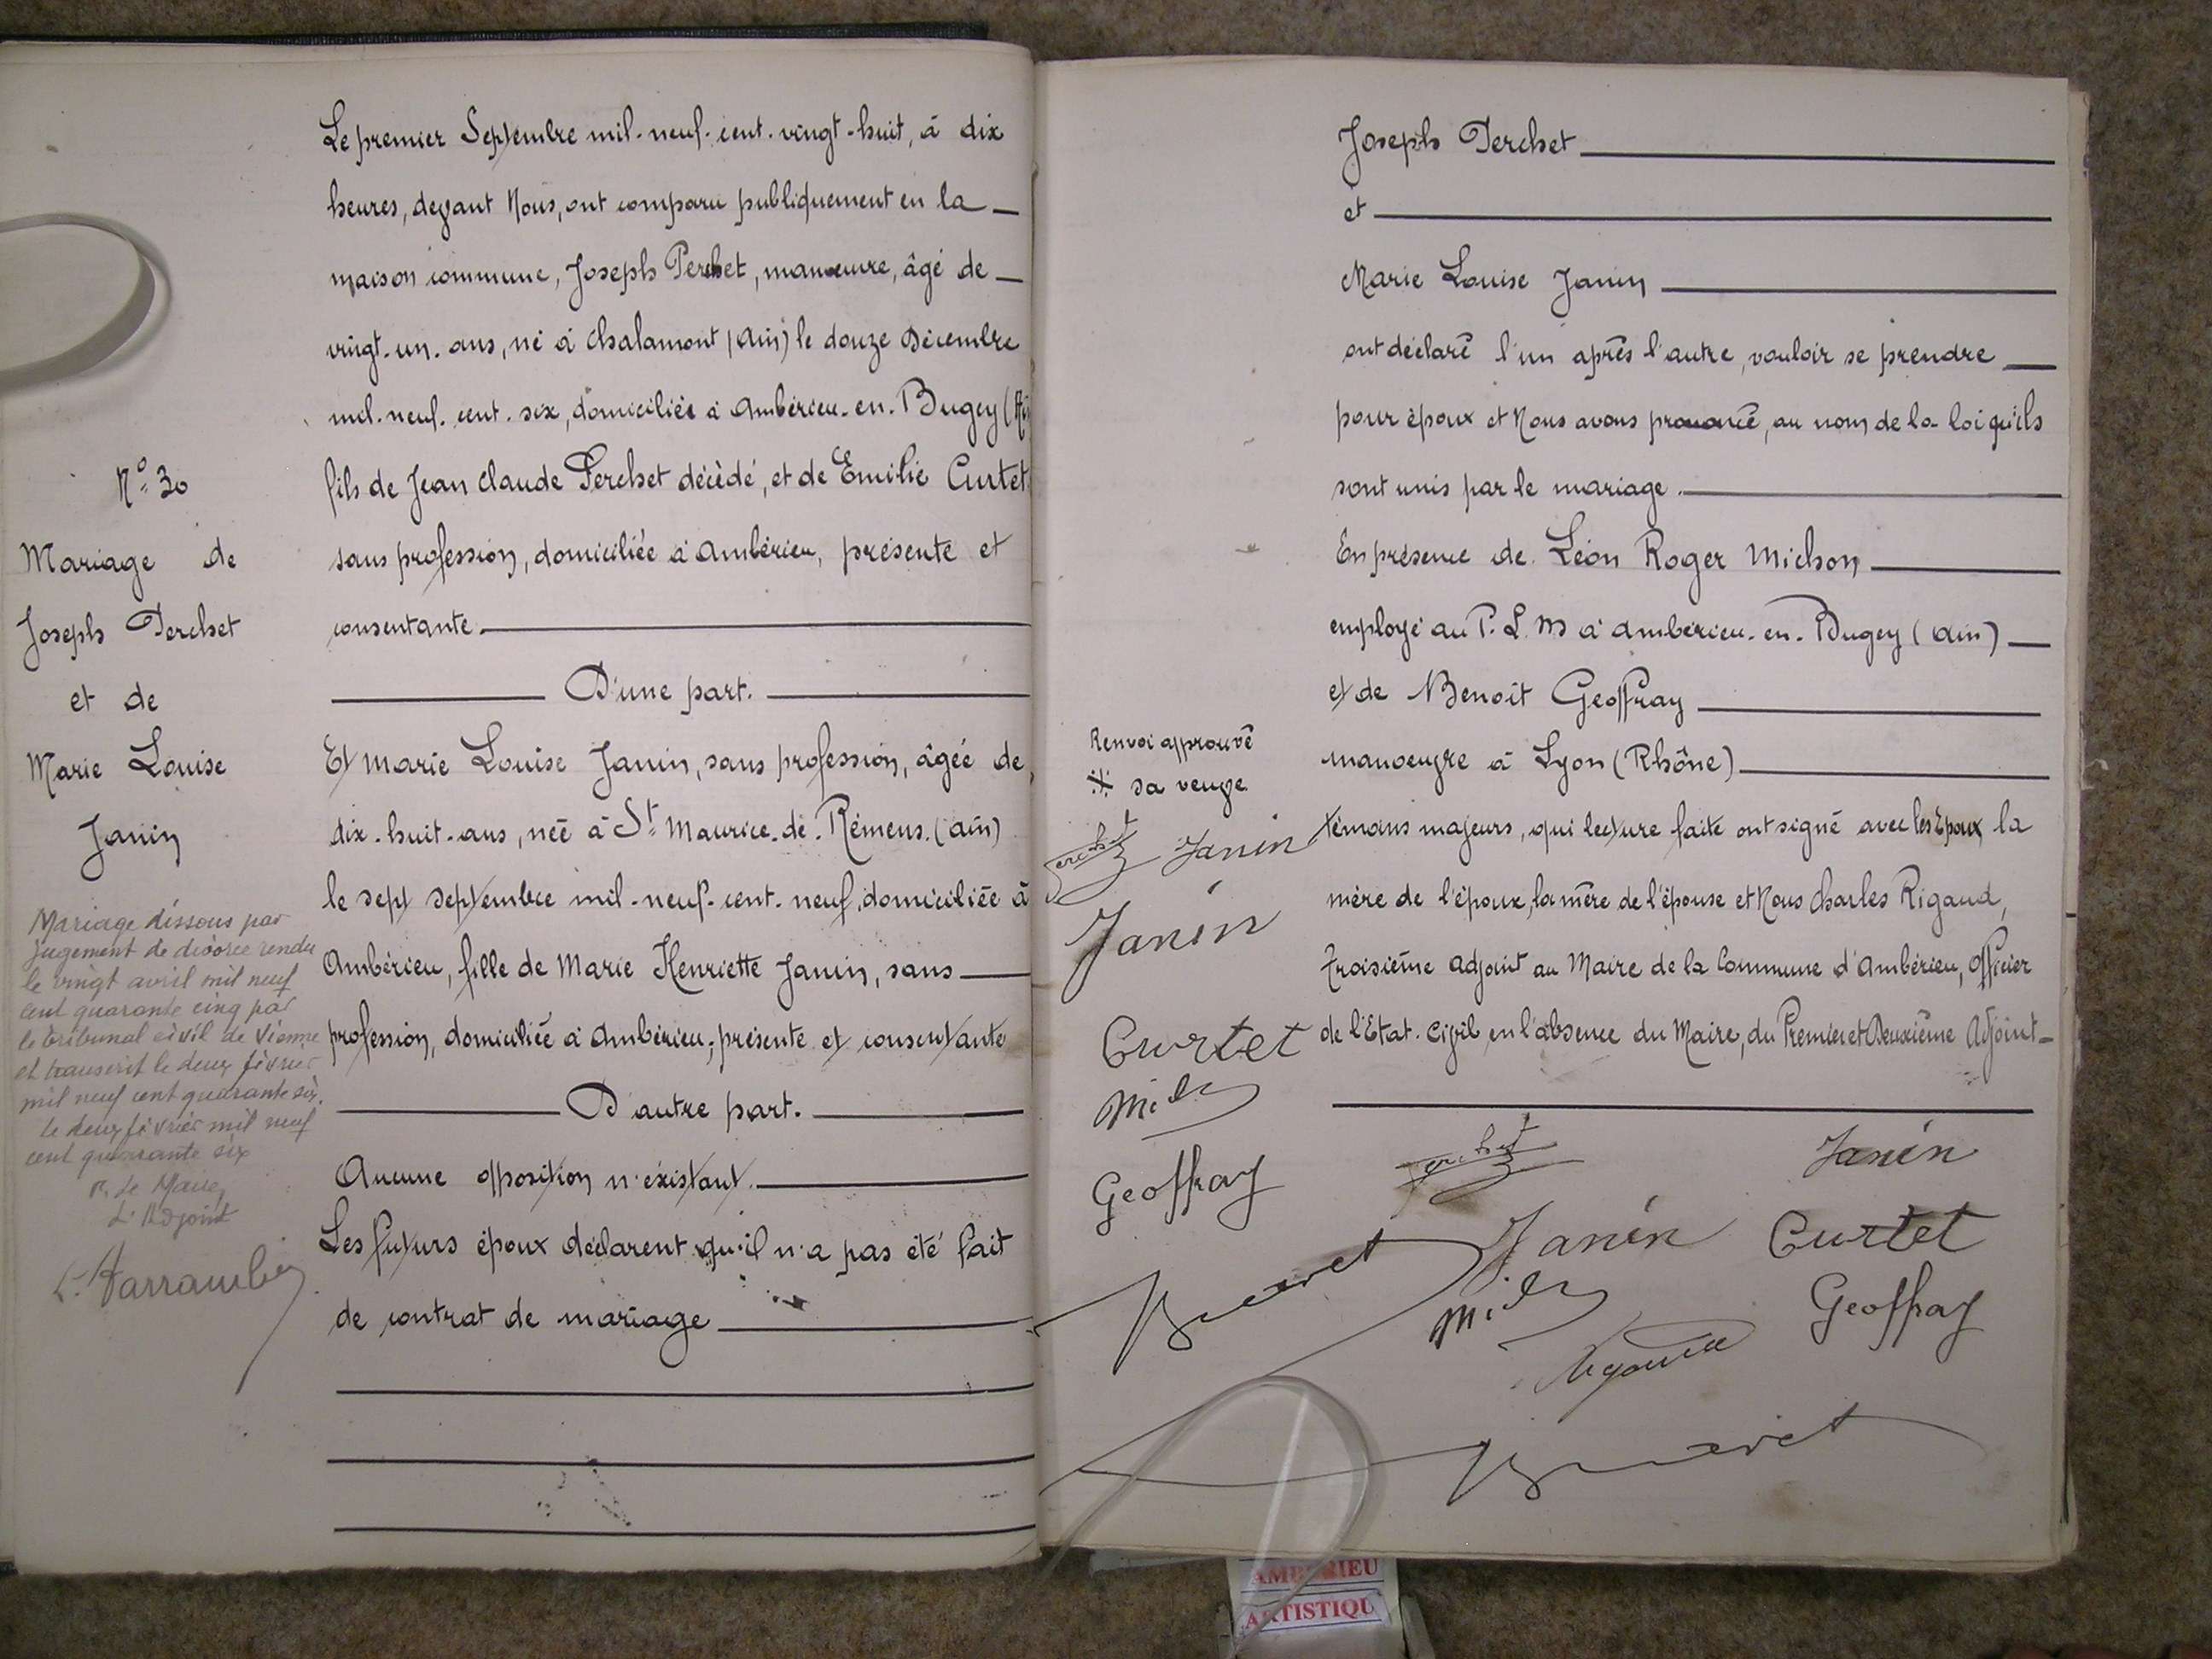 N° 30
Mariage de
Joseph Perchet
et de
Marie Louise
Janin
Mariage dissous par
jugement de divorce rendu
le vingt avril mil neuf
cent quarante cinq par
le tribunal civil de Vienne
et transcrit le deux février
mil neuf cent quarante six.
le deux février mil neuf
cent quarante six
P. Le Maire
L'Adjoint
Le premier Septembre mil-neuf-cent-vingt-huit, à dix
heures, devant Nous, ont comparu publiquement en la
maison commune, Joseph Perchet, manœuvre, âgé de
vingt-un-ans, né à Chalamont (Ain) le douze Décembre
mil-neuf-cent-six, domicilié à Ambérieu-en-Bugey (Ai
fils de Jean Claude Perchet décédé, et de Emilie Curtet
sans profession, domiciliée à Ambérieu, présente et
consentante.
D'une part.
Et Marie Louise Janin, sans profession, âgée de
dix-huit-ans, née à St Maurice-de-Rémens (Ain)
le sept septembre mil-neuf-cent-neuf, domiciliée à
Ambérieu, fille de Marie Henriette Janin, sans
profession, domiciliée à Ambérieu; présente et consentante
D'autre part.
Aucune opposition n'existant.
Les futurs époux déclarent qu'il n'a pas été fait
de contrat de mariage
Joseph Perchet
et
Marie Louise Janin
ont déclaré l'un après l'autre, vouloir se prendre
pour époux et Nous avons prononcé, au nom de la loi qu'ils
sont unis par le mariage.
En présence de Léon Roger Michon
employé au P.L.M à Ambérieu-en-Bugey (Ain)
et de Benoît Geoffray
manoeuvre à Lyon (Rhône)
témoins majeurs, qui lecture faite ont signé avec les Epoux la
mère de l'époux, la mère de l'épouse et Nous Charles Rigaud,
troisième adjoint au Maire de la Commune d'Ambérieu, Officier
de l'Etat-Civil en l'absence du Maire, du Premier et Deuxième Adjoint
Renvoi approuvé
※ sa veuve
Janin
Janin
Curtet
Geoffray
Janin
Janin
Curtet
Geoffray
AMBERIEU
ARTISTIQU